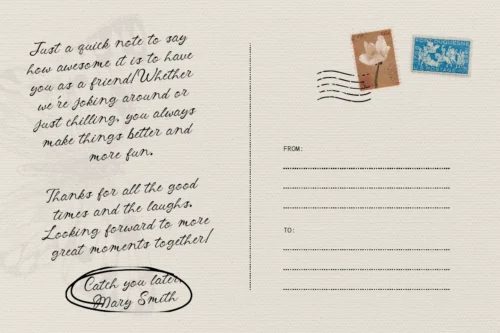 Just a quick note to say
how awesome it is to have
you as a friend! Whether
we're joking around or
just chilling, you always
make things better and
more fun.
Thanks for all the good
times and the laughs.
Looking forward to more
great moments together!
Catch you later,
Mary Smith
FROM:
TO: